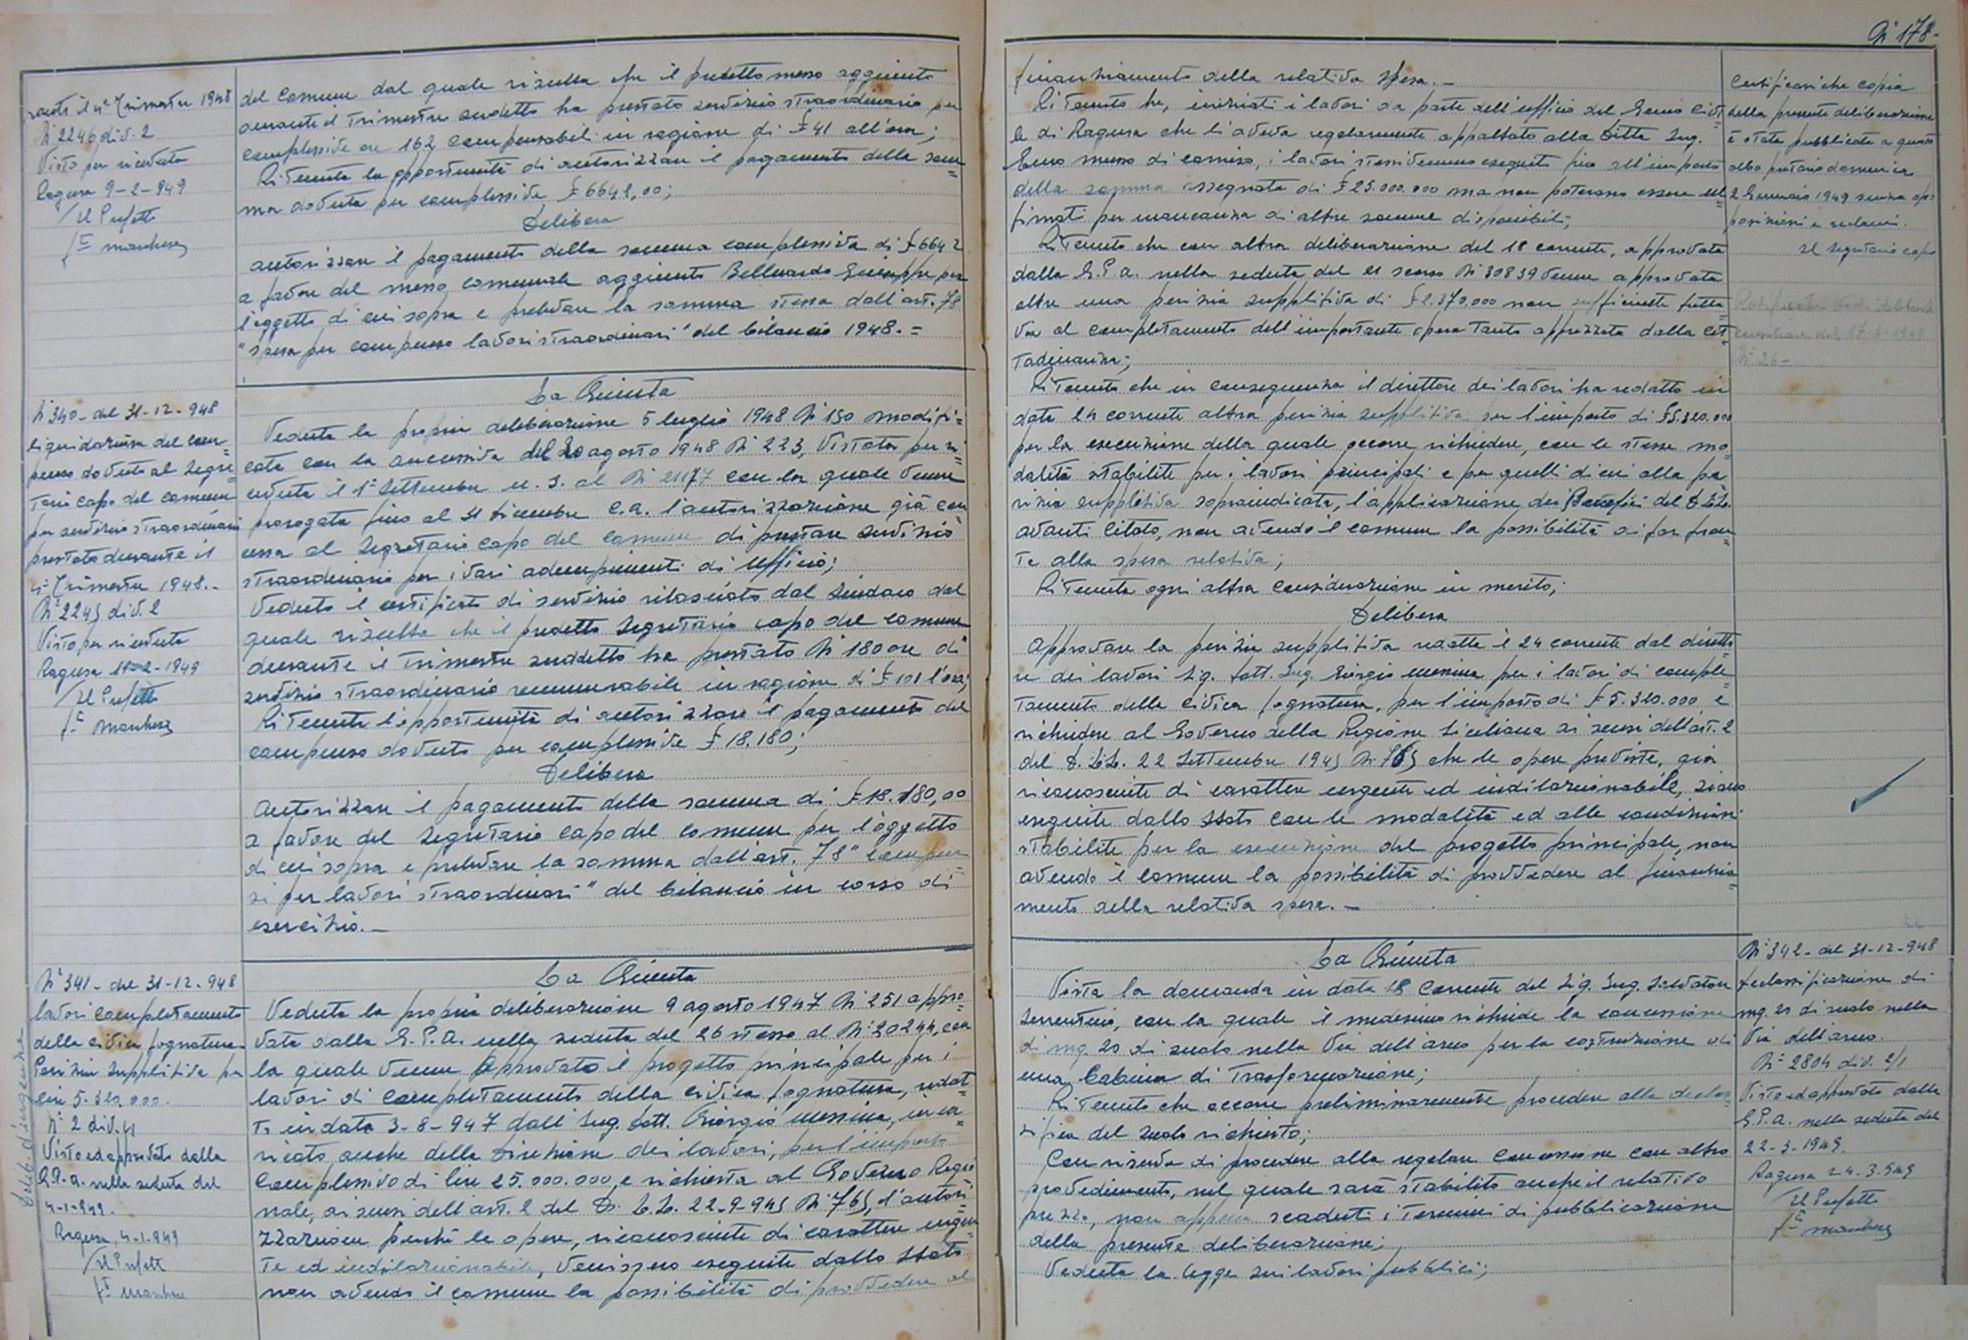 N° 178-
rante il 4° Trimestre 1948
N° 2246 div. 2
Visto per ricevuta
Ragusa 9-2-949
Il Prefetto
f° 
del Comune dal quale risulta che il predetto messo aggiunto
durante il Trimestre suddetto ha prestato servizio straordinario per
complessive ore 162 compensabili in ragione di £ 41 all'ora;
Ritenuta la opportunità di autorizzare il pagamento della som=
ma dovuta per complessive £ 6642,00;
Delibera
autorizzare il pagamento della somma complessiva di £ 6642
a favore del messo comunale aggiunto Belluardo Giuseppe per
l'oggetto di cui sopra e prelevare la somma stessa dall'art. 78
"spesa per compenso lavori straordinari" del bilancio 1948.=
N° 340- del 31-12-948
liquidazione del com=
penso dovuto al Segre=
tario capo del comune
per servizio straordinario
prestato durante il
4° Trimestre 1948.-
N° 2245 div. 2
Visto per ricevuta
Ragusa 11-2-1949
Il Prefetto
f°
La Giunta
Veduta la propria deliberazione 5 luglio 1948 N° 150 modifi=
cata con la successiva del 20 agosto 1948 N° 223, Vistata per ri=
cevuta il 1° Settembre u.s. al N° 21177 con la quale venne
prorogata fino al 31 Dicembre c.a. l'autorizzazione già con
cessa al Segretario capo del comune di prestare servizio
straordinario per i vari adempimenti di ufficio;
Veduto il certificato di servizio rilasciato dal Sindaco dal
quale risulta che il predetto Segretario capo del comune
durante il trimestre suddetto ha prestato N° 180 ore di
servizio straordinario remunerabile in ragione di £ 101 l'ora;
Ritenuta l'opportunità di autorizzare il pagamento del
compenso dovuto per complessive £ 18.180;
Delibera
Autorizzare il pagamento della somma di £ 18.180,00
a favore del Segretario capo del comune per l'oggetto
di cui sopra e prelevare la somma dall'art. 78 "compen
si per lavori straordinari" del bilancio in corso di
esercizio.-
N° 341- del 31-12-948
lavori completamento
della civica fognatura.
Perizia suppletiva per
lire 5.320.000.
N° 2 div. 4
Visto ed approvato dalla
G.P.A. nella seduta del
4-1-949.
Ragusa 4-1-949
Il Prefetto
f°
delib. d'urgenza
La Giunta
Veduta la propria deliberazione 9 agosto 1947 N° 251 appro=
vata dalla G.P.A. nella seduta del 26 stesso al N° 20244, con
la quale venne approvato il progetto principale per i
lavori di completamento della civica fognatura, redat=
to in data 3-8-947 dall'Ing. Dott. Giorgio Messina, inca=
ricato anche della direzione dei lavori, per l'importo
complessivo di lire 25.000.000, e richiesta al Governo Regio
nale, ai sensi dell'art. 2 del D.L.L. 22-9-945 N° 765, l'autori
zzazione perchè le opere, riconosciute di carattere urgen=
te ed indilazionabile, venissero eseguite dallo Stato
non avendo il comune la possibilità di provvedere al
finanziamento della relativa spesa.-
Ritenuto che, iniziati i lavori da parte dell'ufficio del Genio Civi
le di Ragusa che li aveva regolarmente appaltato alla Ditta Ing.
di Comiso, i lavori stessi vennero eseguiti fino all'importo
della somma assegnata di £ 25.000.000 ma non poterono essere ul=
timati per mancanza di altre somme disponibili;
Ritenuto che con altra deliberazione del 18 corrente, approvata
dalla G.P.A. nella seduta del 21 scorso N° 30839 venne approvata
altra una perizia suppletiva di £ 2.370.000 non sufficiente tutta
via al completamento dell'importante opera tanto apprezzata dalla cit=
tadinanza;
Ritenuto che in conseguenza il direttore dei lavori ha redatto in
data 24 corrente altra perizia suppletiva per l'importo di £ 5.320.000
per la esecuzione della quale occorre richiedere, con le stesse mo=
dalità stabilite per i lavori principali e per quelli di cui alla pe=
rizia suppletiva sopraindicata, l'applicazione dei Benefici del D.L.L.
avanti citato, non avendo il comune la possibilità di far fron=
te alla spesa relativa;
Ritenuta ogni altra considerazione in merito;
Delibera
Approvare la perizia suppletiva redatta il 24 corrente dal diretto=
re dei lavori Sig. Dott. Ing. Giorgio Messina per i lavori di comple=
tamento della Civica fognatura, per l'importo di £ 5.320.000 e
richiedere al Governo della Regione Siciliana ai sensi dell'art. 2
del D.L.L. 22 Settembre 1945 N° 765 che le opere previste, già
riconosciute di carattere urgente ed indilazionabile, siano
eseguite dallo Stato con le modalità ed alle condizioni
stabilite per la esecuzione del progetto principale, non
avendo il comune la possibilità di provvedere al finanzia=
mento della relativa spesa.-
Certificasi che copia
della presente deliberazione
è stata pubblicata a questo
albo pretorio domenica
2 Gennaio 1949 senza op=
posizioni e reclami.
Il Segretario capo
Ratificata
consiliare del 27-6-1949
N° 26-
La Giunta
Vista la domanda in data 18 corrente del Sig. Ing. Salvatore
Sorrentino, con la quale il medesimo richiede la concessione
di mq. 20 di suolo nella Via dell'arco per la costruzione di
una Cabina di Trasformazione;
Ritenuto che occorre preliminarmente procedere alla declas=
sifica del suolo richiesto;
Con riserva di procedere alla regolare concessione con altro
provvedimento, nel quale sarà stabilito anche il relativo
prezzo, non appena scaduti i termini di pubblicazione
della presente deliberazione;
Veduta la legge sui lavori pubblici;
N° 342- del 31-12-948
declassificazione di
mq. 20 di suolo nella
Via dell'arco.
N° 2804 div. 2/1
Visto ed approvato dalla
G.P.A. nella seduta del
22-3-1949.
Ragusa 24-3-949
Il Prefetto
f°